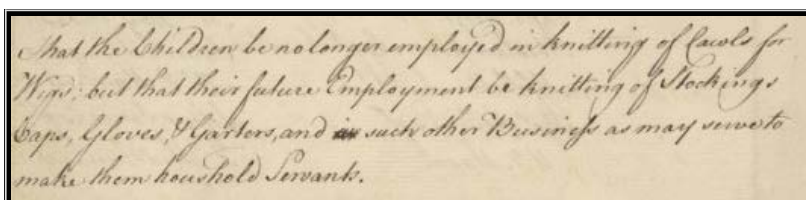 That the Children be no longer employed in knitting of Cawls for
Wigs; but that their future Employment be knitting of Stockings
Caps, Gloves, & Garters, and such other Business as may serve to
make them houshold Servants.